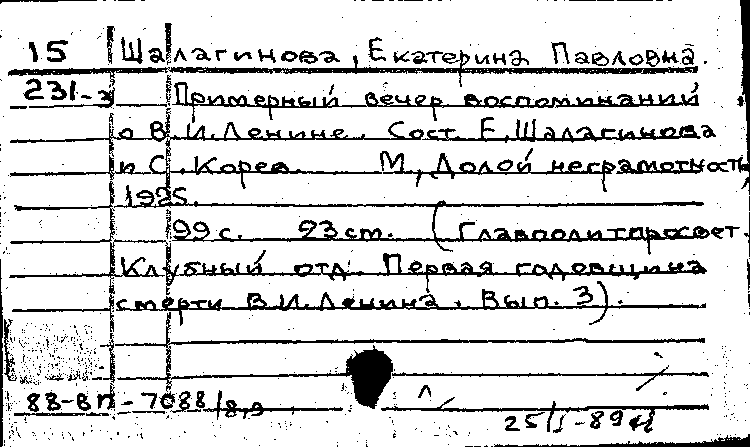 15 Шалагинова, Екатерина Павловна.
231-3 Примерный вечер воспоминаний
о В.И.Ленине. Сост. Е.Шалагинова
и С. Корев. М., Долой неграмотность,
1925.
99 с. 23 см. (Главполитпросвет.
Клубный отд. Первая годовщина
смерти В.И.Ленина. Вып. 3).
88-ВП-7088/8,9
25/I-89